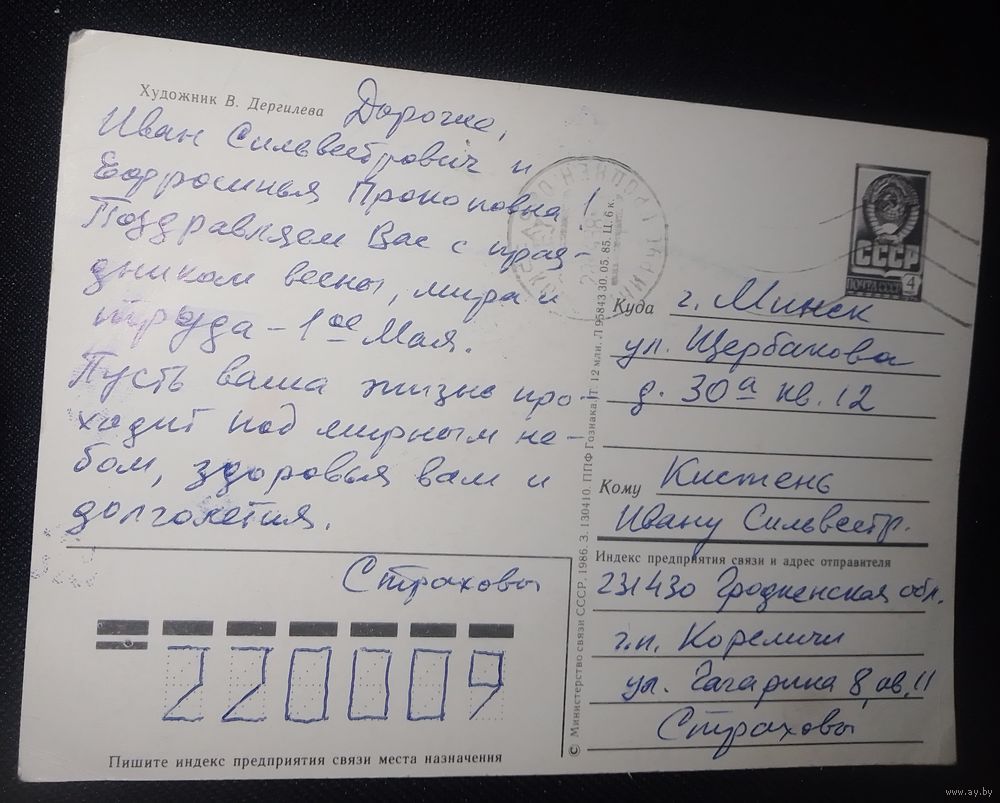 Художник В. Дергилева
Дорогие,
Иван Сильвестрович и
Ефросинья Прокоповна!
Поздравляем Вас с праз-
дником весны, мира и
труда – 1ое Мая.
Пусть ваша жизнь про-
ходит под мирным не-
бом, здоровья вам и
долголетия.
Страховы
220009
Пишите индекс предприятия связи места назначения
© Министерство связи СССР, 1986. З. 130410. ППФ Гознака. Т. 12 млн. Л 95843 30. 05. 85. Ц. 6 к.
СССР
ПОЧТА СССР
4
Куда г. Минск
ул. Щербакова
д. 30а кв. 12
Кому Кистень
Ивану Сильвестр.
Индекс предприятия связи и адрес отправителя
231430 Гродненская обл.
г.п. Кореличи
ул. Гагарина 8, кв. 11
Страховы
www.ay.by